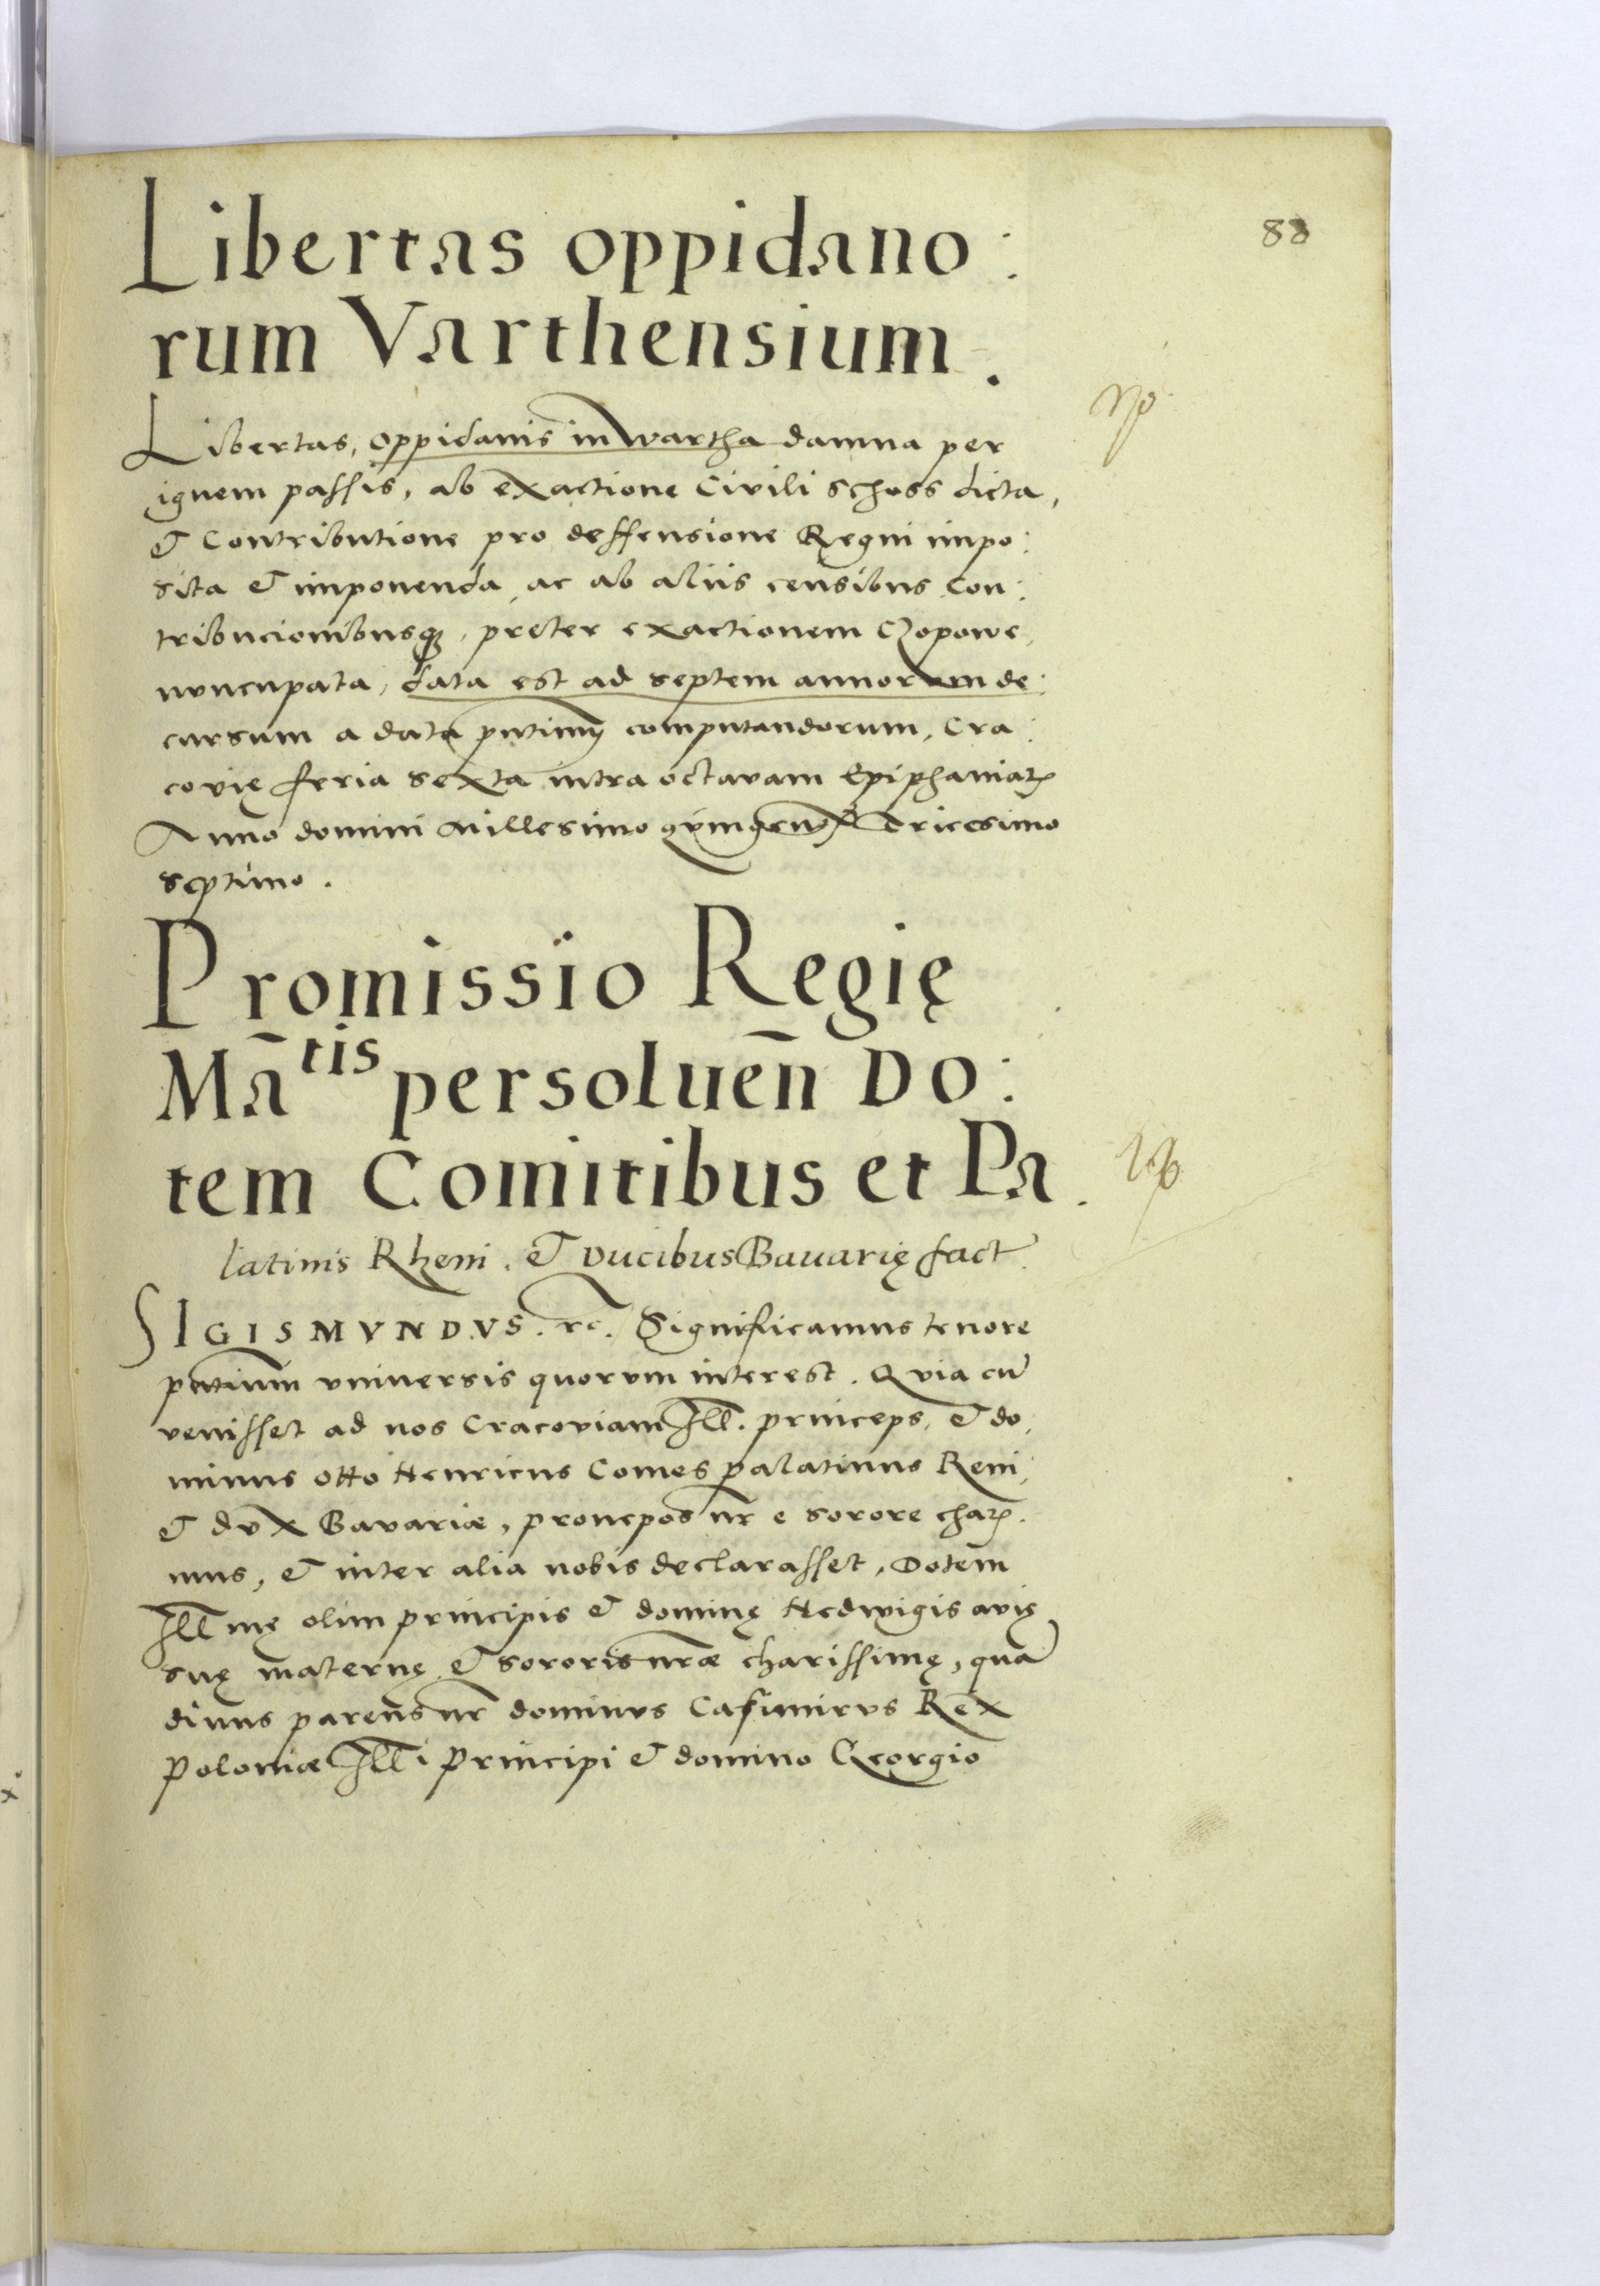 88
Libertas oppidano:
rum Varthensium.
Libertas, oppidanis in Wartha damna per
ignem passis, ab exactione Civili schoss dicta,
et Contributione pro deffensione Regni impo:
sita et imponenda, ac ab aliis censibus Con:
tribucionibusq̃, preter exactionem Czopowe,
nuncupata, data est ad septem annorum de:
cursum a data pñtium computandorum, Cra:
covię feria sexta intra octavam Epiphaniarꝫ
Anno domini Millesimo quingenꝭ Tricesimo
septimo.
Promissio Regię
Mãtis persoluen̄ Do:
tem Comitibus et Pa.
latinis Rheni. et Ducibus Bauarię fact
SIGISMVNDVS. rc. Significamus tenore
pñtium vniversis quorum interest. Quia cũ
venisset ad nos Cracoviam Ill. princeps, et do,
minus Otto Henricus Comes palatinus Reni,
et dux Bavariæ, pronepos nr̃ e sorore charꝫ.
mus, et inter alia nobis declarasset, Dotem
Ill mę olim principis et dominę Hedwigis avię
suę maternę et sororis nr̃æ charissimę, quã
divus parens nr̃ dominus Casimirus Rex
Poloniæ Ill i Principi et domino Georgio